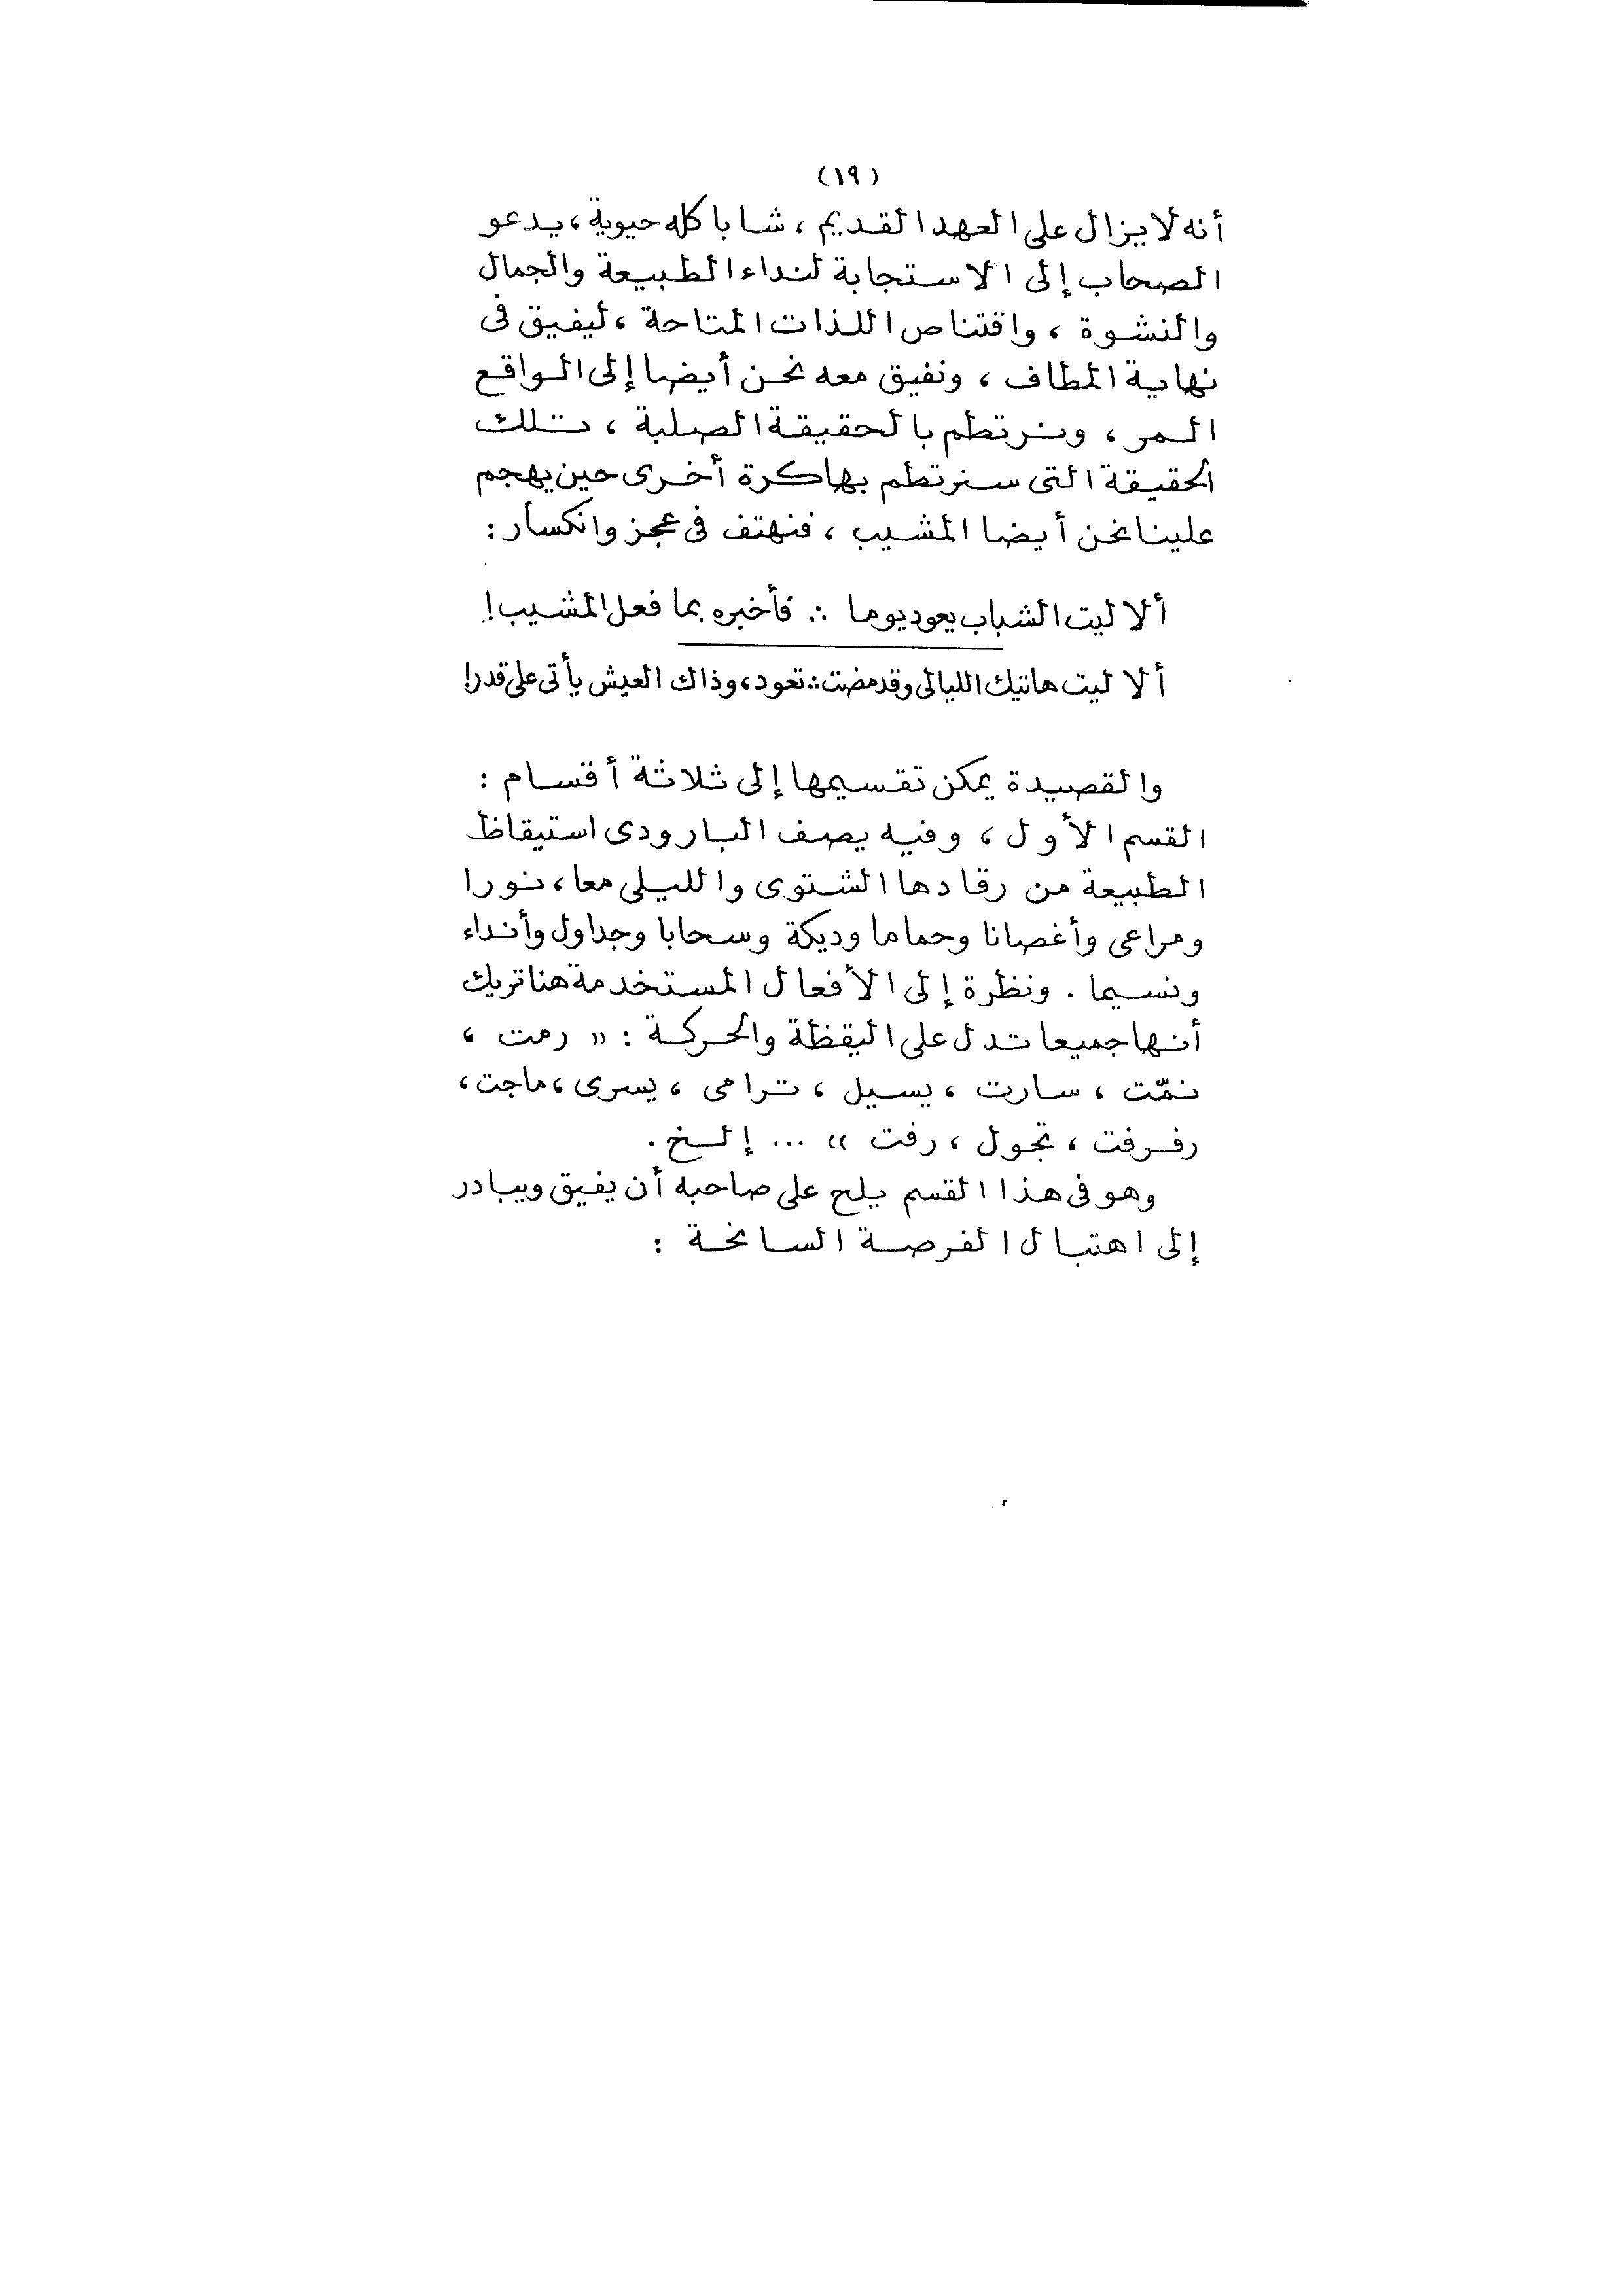 (١٩)
أنه لا يزال على العهد القديم ، شابا كله حيوية ، يدعو
الصحاب إلى الاستجابة لنداء الطبيعة والجمال
والنشوة ، واقتناص اللذات المتاحة ، ليفيق فى
نهاية المطاف ، ونفيق معه نحن أيضا إلى الواقع
المر ، ونرتطم بالحقيقة الصلبة ، تلك
الحقيقة التى سنرتطم بها كرة أخرى حين يهجم
علينا نحن أيضا المشيب ، فنهتف فى عجز وانكسار :
ألا ليت الشباب يعود يوما ∴ فأخبره بما فعل المشيب !
ألا ليت هاتيك الليالى وقد مضت ∴ تعود ، وذاك العيش يأتى على قدر !
والقصيدة يمكن تقسيمها إلى ثلاثة أقسام :
القسم الأول ، وفيه يصف البارودى استيقاظ
الطبيعة من رقادها الشتوى والليلى معا ، نورا
ومراعى وأغصانا وحماما وديكة وسحابا وجداول وأنداء
ونسيما . ونظرة إلى الأفعال المستخدمة هنا تريك
أنها جميعا تدل على اليقظة والحركة : « رمت ،
نمّت ، سارت ، يسيل ، ترامى ، يسرى ، ماجت ،
رفرفت ، تجول ، رفت » ... إلخ .
وهو فى هذا القسم يلح على صاحبه أن يفيق ويبادر
إلى اهتبال الفرصة السانحة :